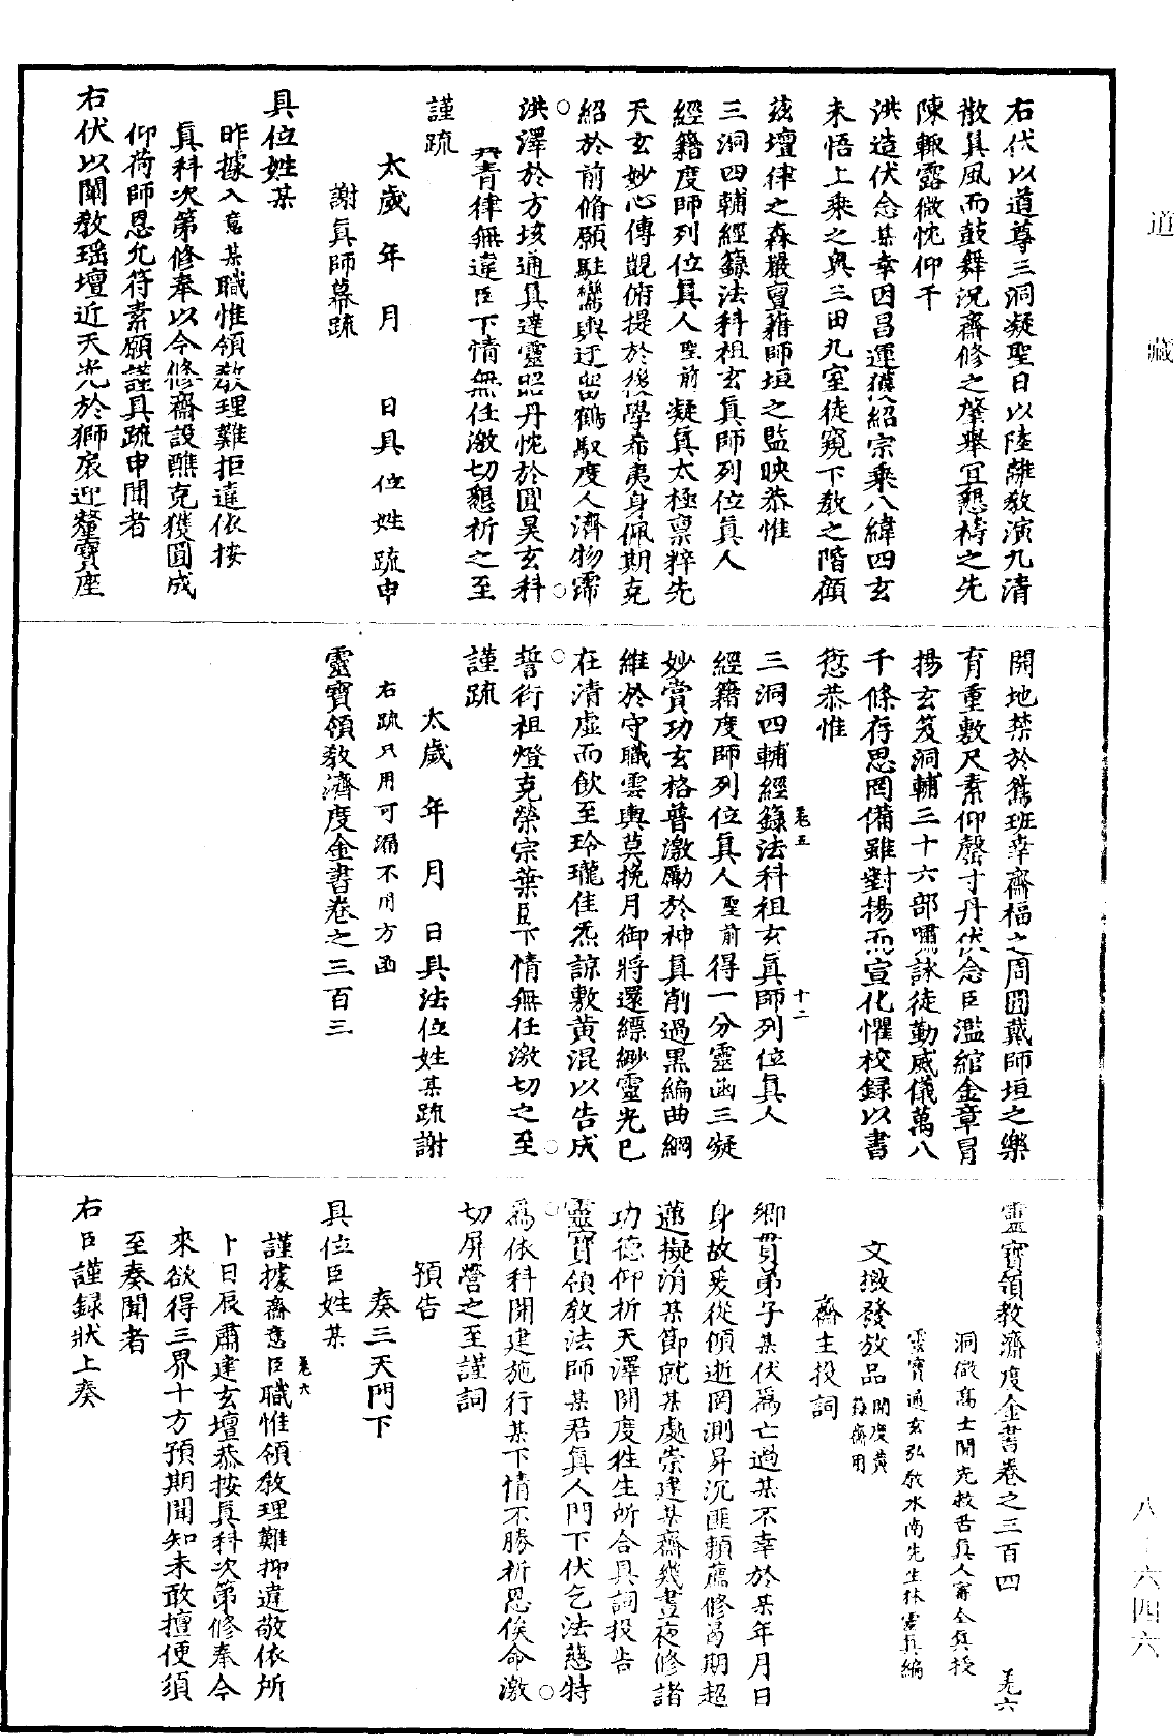 道藏
右伏以道尊三洞凝聖日以陸離教演九清
散真風而鼓舞況齋修之肇舉宜懇禱之先
陳輒露微忱仰干
洪造伏念某幸因昌運獲紹宗乘八緯四玄
未悟上乘之奧三田九室徒窺下教之階顧
茲壇律之森嚴亶藉師垣之監映恭惟
三洞四輔經籙法科祖玄真師列位真人
經籍度師列位真人聖前凝真太極禀粹先
天玄妙心傳覬俯提於後學希夷身佩期克
紹於前脩願駐鸞輿迂留鶴馭度人濟物霈
洪澤於方垓通真達靈昭丹忱於圓昊玄科
丹青律無違臣下情無任激切懇祈之至
謹疏
太歲 年 月 日具位姓疏申
謝真師幕疏
具位姓某
昨據入意某職惟領教理難拒違依按
真科次第修奉以今修齋設醮克獲圓成
仰荷師恩允符素願謹具疏申聞者
右伏以闡教瑶壇近天光於獅扆迎釐寶座
開地禁於鴛班幸齋福之周圓戴師垣之樂
育重敷尺素仰罄寸丹伏念臣濫綰金章冒
揚玄笈洞輔三十六部嘯詠徒勤威儀萬八
千條存思罔備雖對揚而宣化懼校録以書
愆恭惟
三洞四輔經籙法科祖玄真師列位真人
經籍度師列位真人聖前得一分靈函三凝
妙賞功玄格普激勵於神真削過黑編曲綱
維於守職雲輿莫挽月御將還縹緲靈光已
在清虛而飲至玲瓏佳炁諒敷黃混以告成
誓衍祖燈克榮宗葉臣下情無任激切之至
謹疏
太歲 年 月 日具法位姓某疏謝
右疏只用可漏不用方函
靈寶領教濟度金書卷之三百三
卷五 十二
靈寶領教濟度金書卷之三百四 卷六
洞微高士開光救苦真人甯全真授
靈寶通玄弘教水南先生林靈真編
文檄發放品開度黃籙齋用
齋主投詞
鄉貫弟子某伏為亡過某不幸於某年月日
身故爰從傾逝罔測昇沉匪賴薦修曷期超
邁擬涓某節就某處崇建某齋幾晝夜修諸
功德仰祈天澤開度往生所合具詞投告
靈寶領教法師某君真人門下伏乞法慈特
為依科開建施行某下情不勝祈恩俟命激
切屏營之至謹詞
預告
奏三天門下
具位臣姓某
謹據齋意臣職惟領教理難抑違敬依所
卜日辰肅建玄壇恭按真科次第修奉今
來欲得三界十方預期聞知未敢擅便須
至奏聞者
右臣謹録狀上奏
卷六
八·六四六